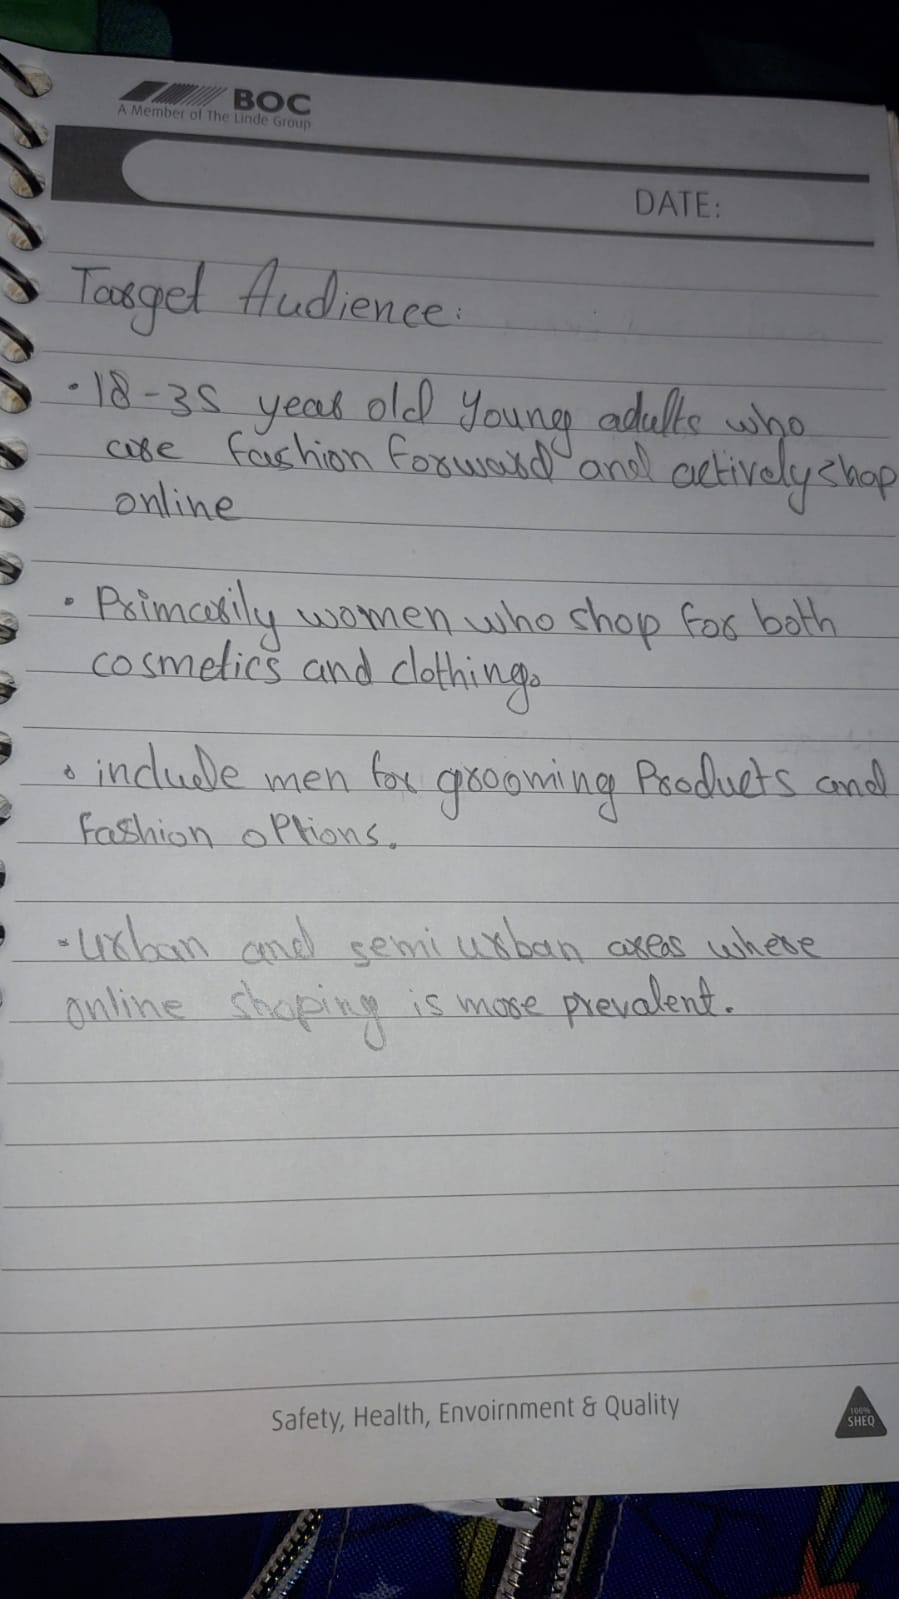 BOC
A Member of The Linde Group
DATE:
Target Audience:
• 18-35 years old young adults who
are fashion forward and actively shop
online
• Primarily women who shop for both
cosmetics and clothing.
• include men for grooming Products and
fashion options.
• urban and semi urban areas where
online shoping is more prevalent.
Safety, Health, Envoirnment & Quality
100%
SHEQ